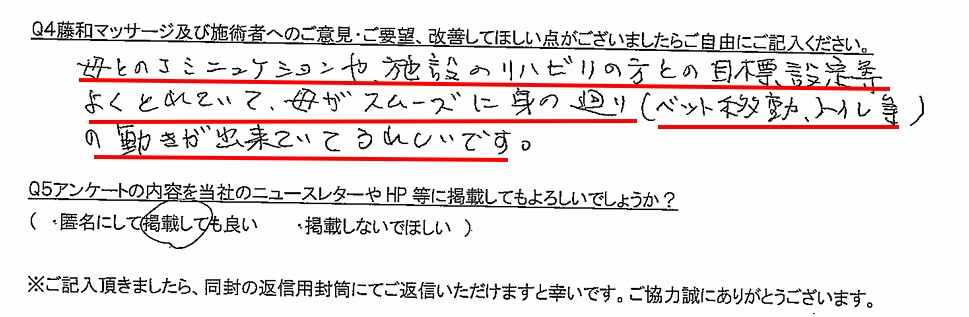 Q4藤和マッサージ及び施術者へのご意見・ご要望、改善してほしい点がございましたらご自由にご記入ください。
母とのコミニュケションや、施設のリハビリの方との目標、設定等
よくとれていて、母がスムーズに身の廻り(ベット移動、トイレ等)
の動きが出来ていてうれしいです。
Q5アンケートの内容を当社のニュースレターやHP等に掲載してもよろしいでしょうか?
( ・匿名にして掲載しても良い ・掲載しないでほしい )
※ご記入頂きましたら、同封の返信用封筒にてご返信いただけますと幸いです。ご協力誠にありがとうございます。